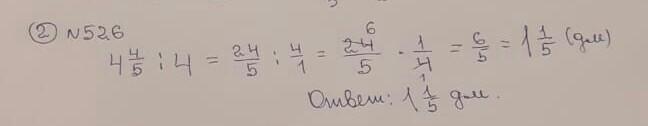 ② №526
4 4/5 : 4 = 24/5 : 4/1 = 24/5 · 1/4 = 6/5 = 1 1/5 (дм)
6
1
Ответ: 1 1/5 дм.